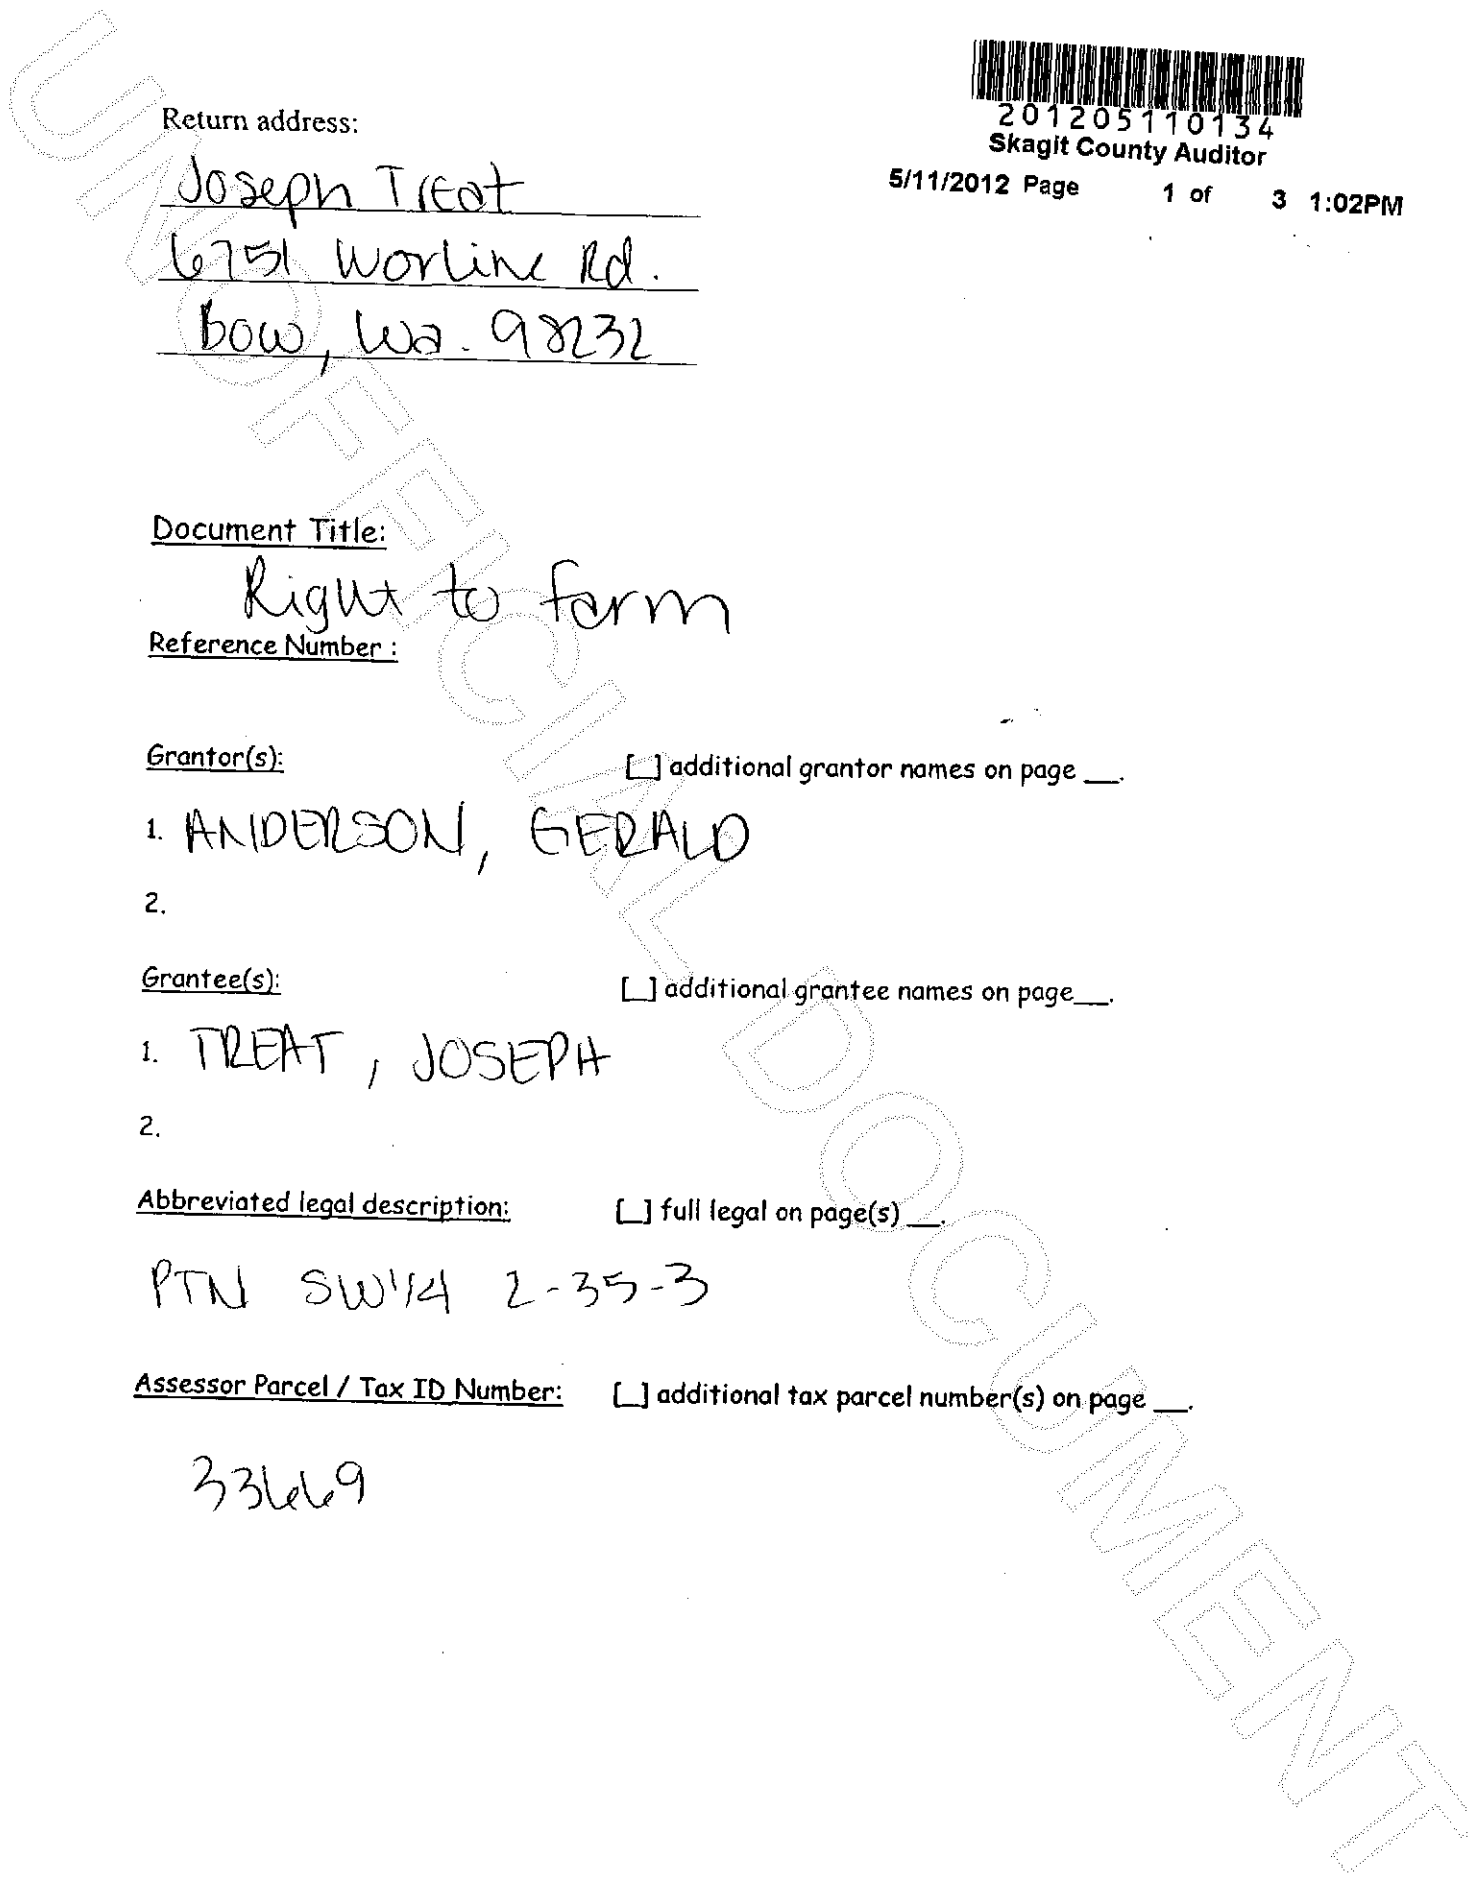 201205110134
Skagit County Auditor
5/11/2012 Page 1 of 3 1:02PM
Return address:
Joseph Treat
6751 Worline Rd.
Bow, Wa. 98232
Document Title:
Right to farm
Reference Number :
Grantor(s): [_] additional grantor names on page __.
1. ANDERSON, GERALD
2.
Grantee(s): [_] additional grantee names on page__.
1. TREAT, JOSEPH
2.
Abbreviated legal description: [_] full legal on page(s) __.
PTN SW1/4 2-35-3
Assessor Parcel / Tax ID Number: [_] additional tax parcel number(s) on page __.
33669
UNOFFICIAL DOCUMENT